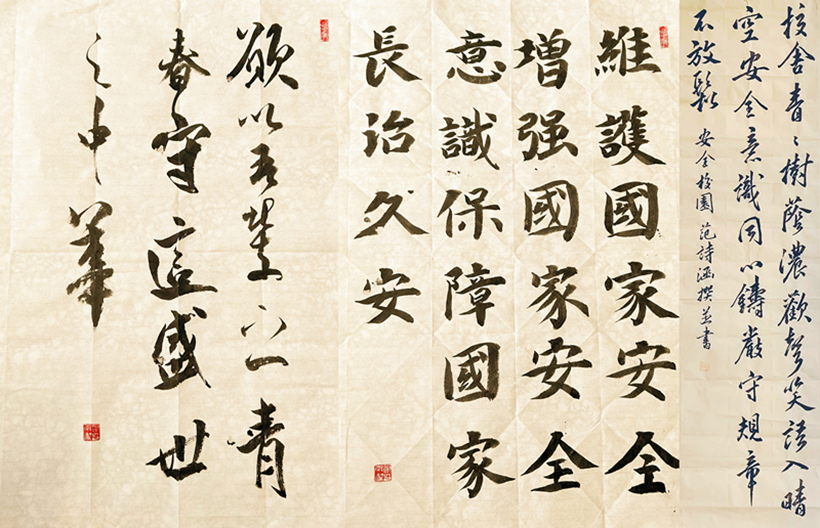 校舍青々樹蔭濃歡聲笑語入晴
空安全意識同心鑄嚴守規章
不放鬆
安全校園 范詩涵撰並書
維護國家安全
增强國家安全
意識保障國家
長治久安
欲以吾輩之青
春守這盛世
之中華